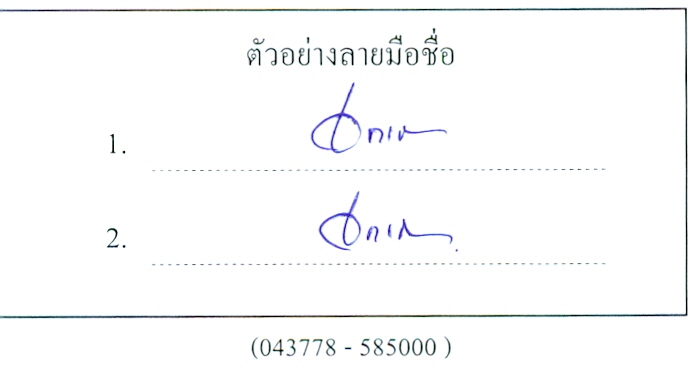 ตัวอย่างลายมือชื่อ
1.
2.
(043778 - 585000 )